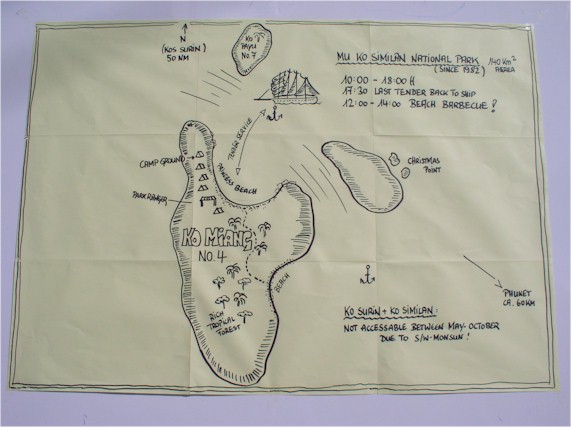 N
(KOS SURIN)
50 NM
KO
PAYU
No.7
MU KO SIMILAN NATIONAL PARK
(SINCE 1982)
140 Km²
AREA
10:00 - 18:00 H
17:30 LAST TENDER BACK TO SHIP
12:00 - 14:00 BEACH BARBECUE!
TENDER SERVICE
CAMP GROUND
PRINCESS BEACH
PARK RANGER
CHRISTMAS
POINT
KO MIANG
NO.4
BEACH
RICH
TROPICAL
FOREST
PHUKET
CA. 60KM
KO SURIN + KO SIMILAN:
NOT ACCESSABLE BETWEEN MAY-OCTOBER
DUE TO S/W-MONSUN!